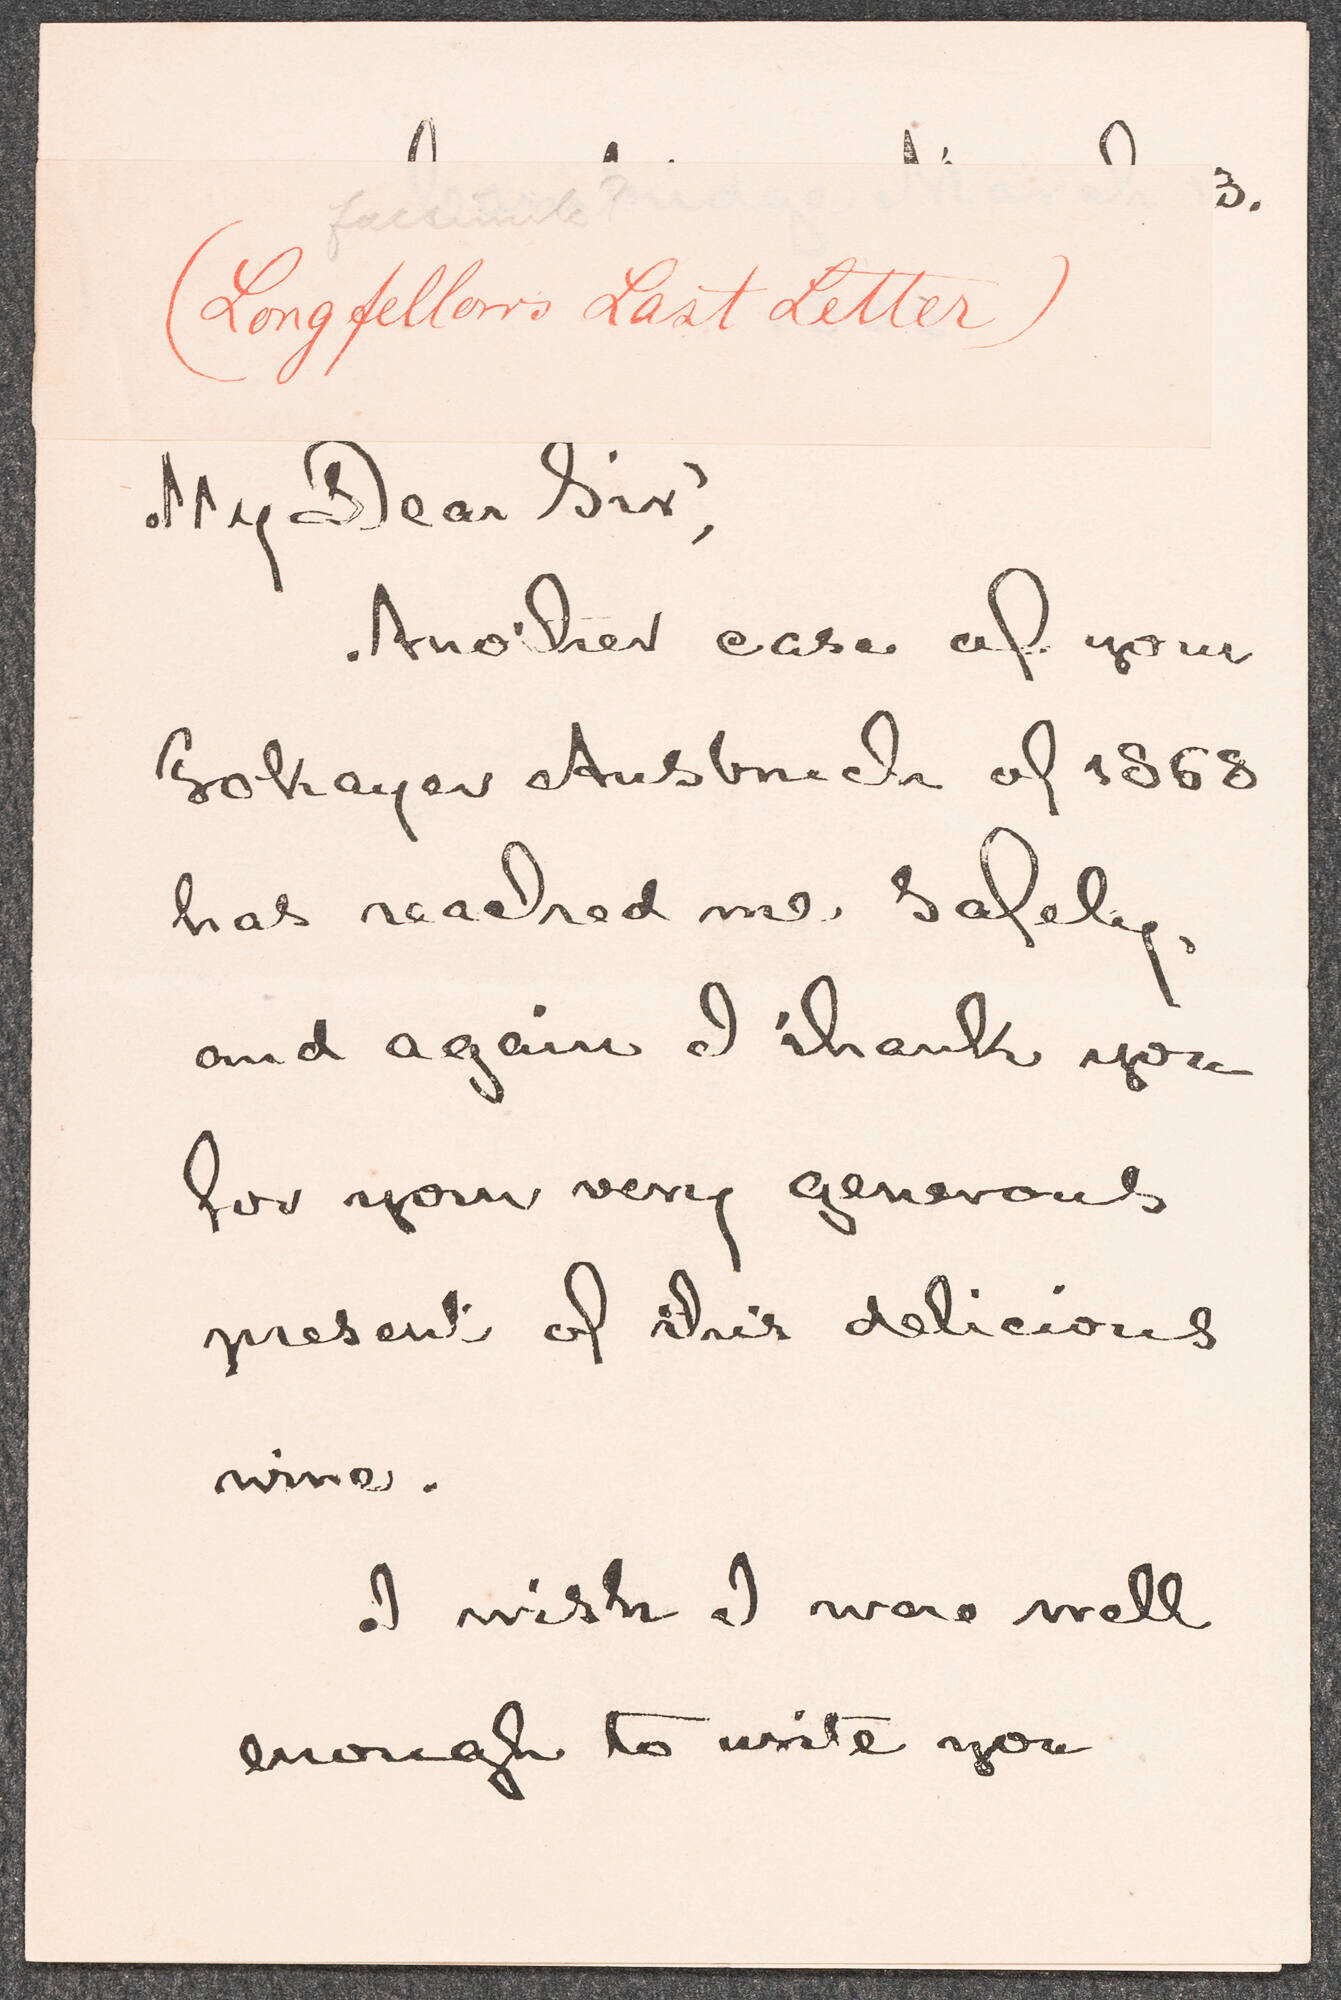 Cambridge March 13.
facsimile?
(Longfellow's Last Letter)
My Dear Sir,
Another case of your
Tokayer Ausbruch of 1868
has reached me safely,
and again I thank you
for your very generous
present of this delicious
wine.
I wish I were well
enough to write you